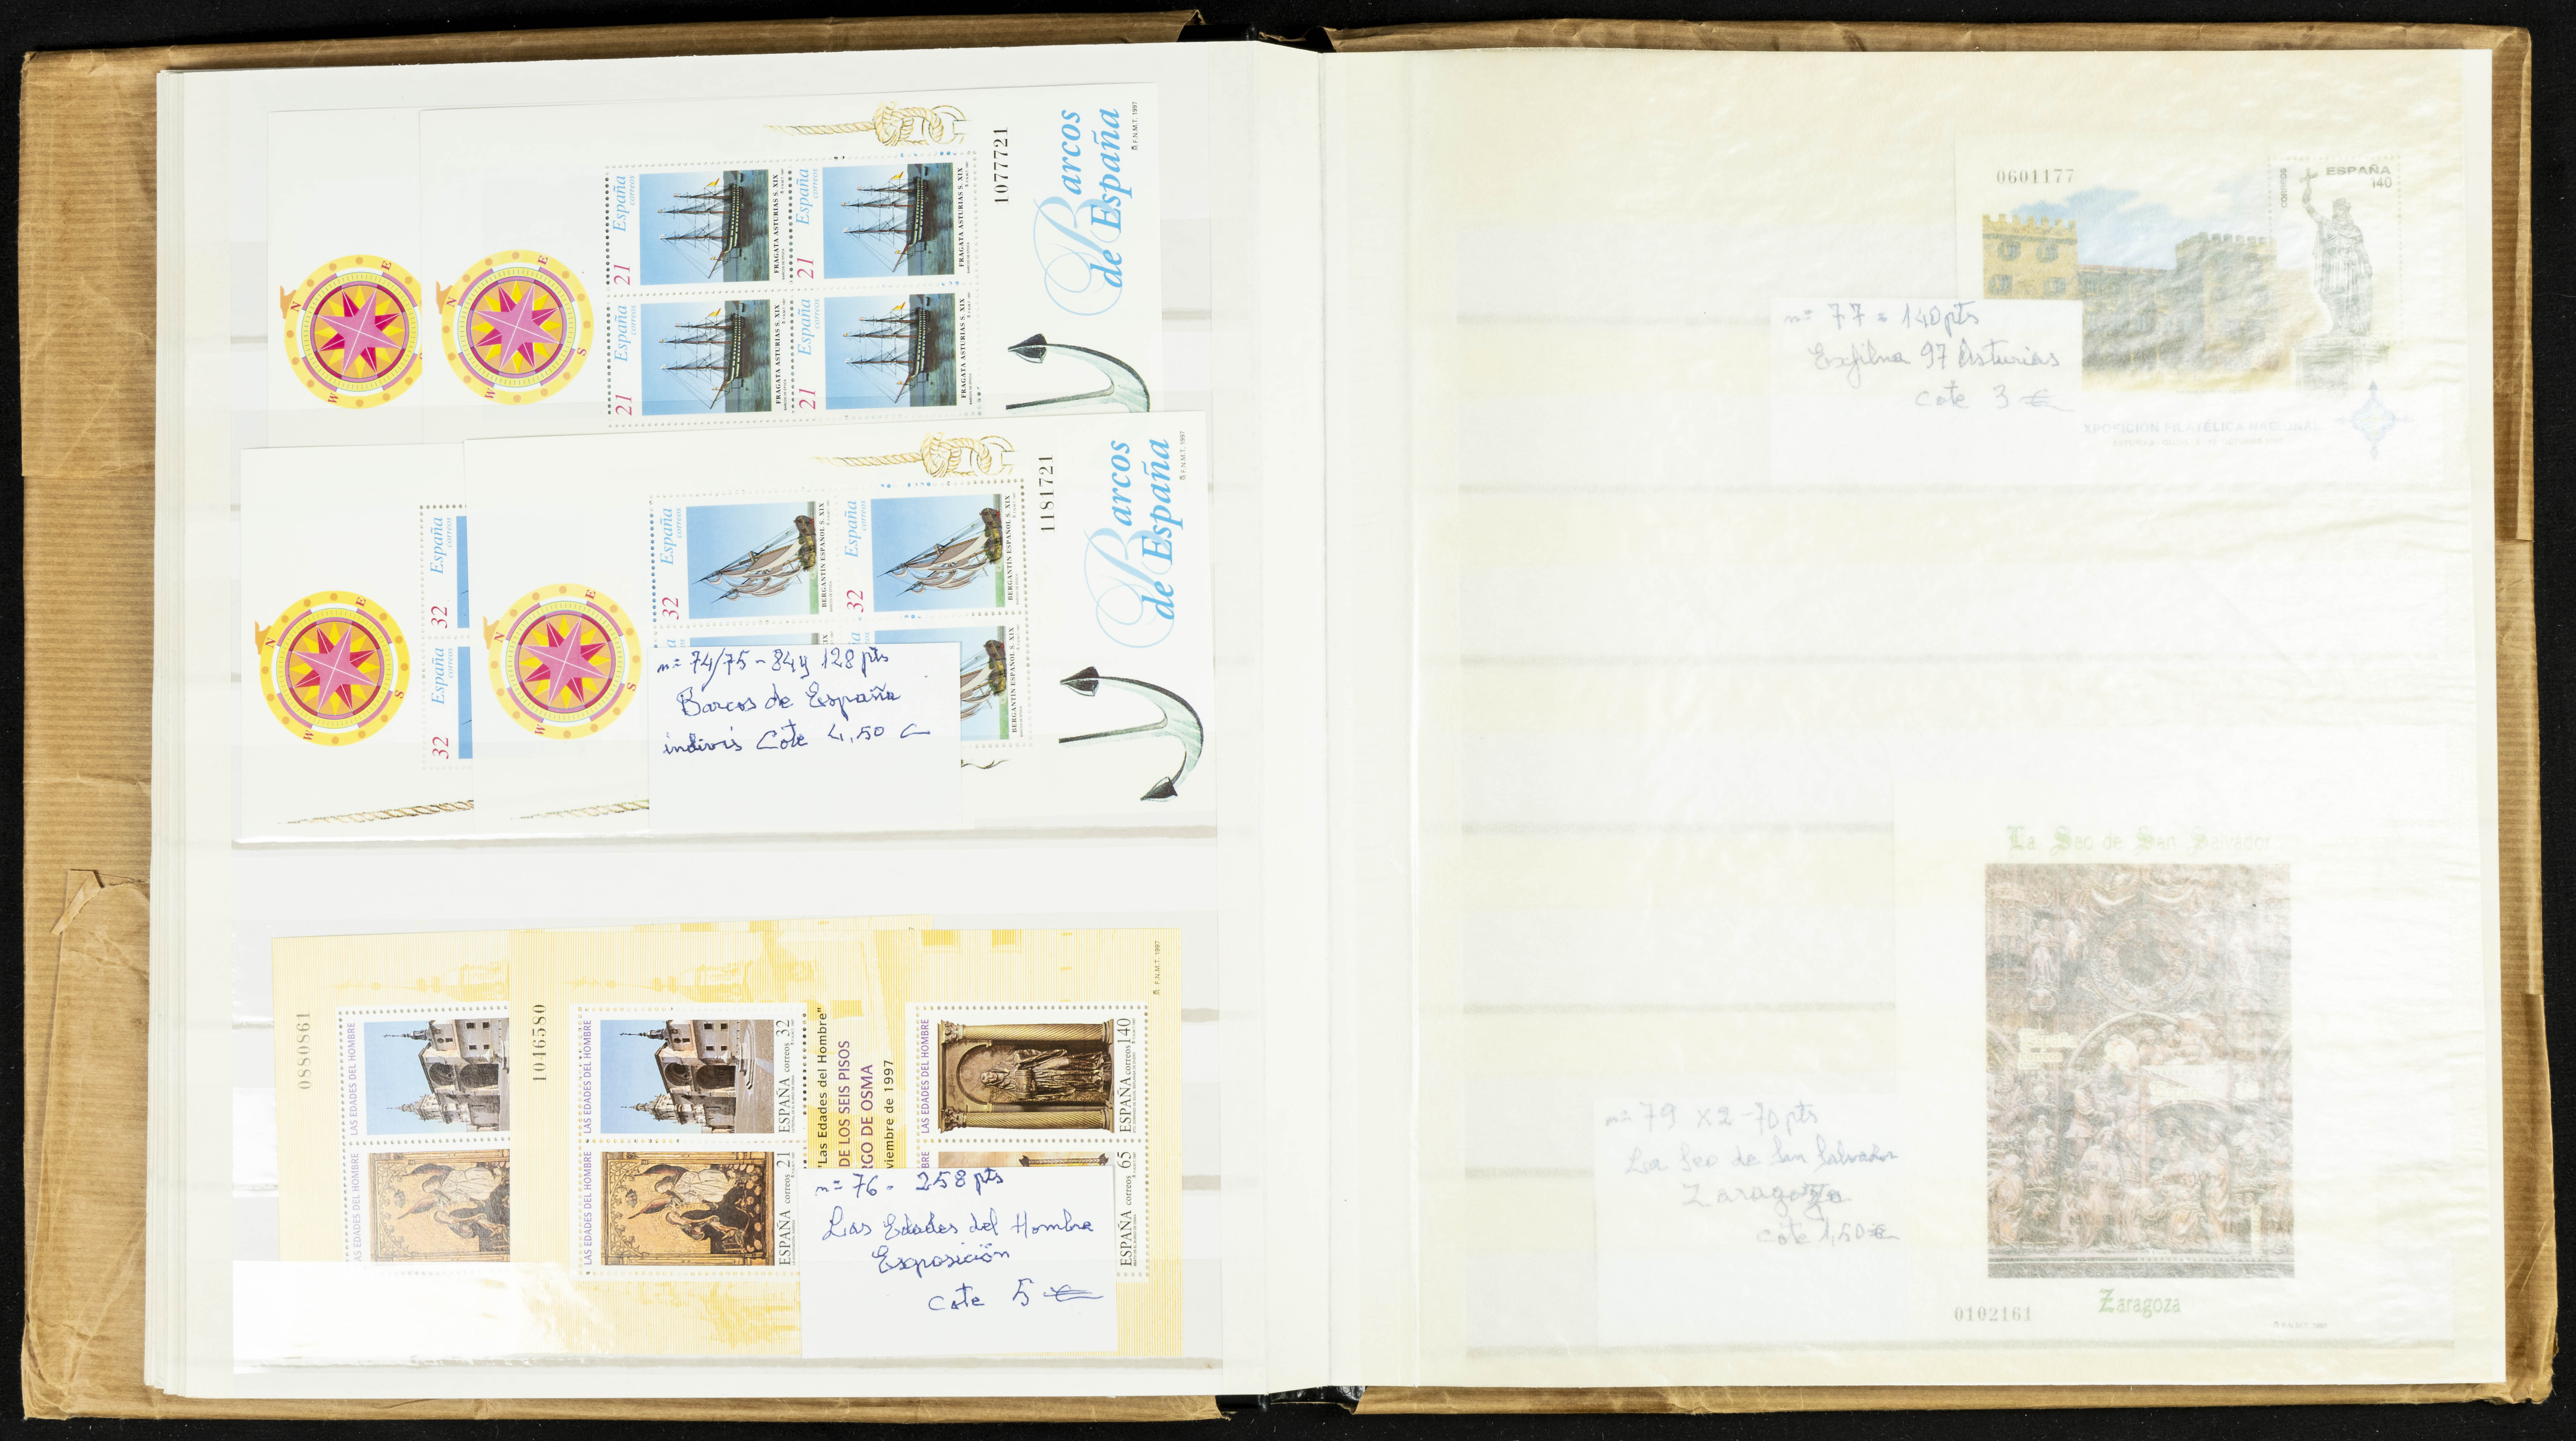 Barcos
de España
1077721
F.N.M.T. 1997
España
correos
21
FRAGATA ASTURIAS S. XIX
España
correos
21
FRAGATA ASTURIAS S. XIX
España
correos
21
FRAGATA ASTURIAS S. XIX
España
correos
21
FRAGATA ASTURIAS S. XIX
N
E
S
W
N
E
S
W
Barcos
de España
1181721
F.N.M.T. 1997
España
correos
32
BERGANTIN ESPAÑOL S. XIX
España
correos
32
BERGANTIN ESPAÑOL S. XIX
BERGANTIN ESPAÑOL S. XIX
España
correos
32
España
correos
32
N
E
S
W
N
E
S
W
nº 74/75 - 84 y 128 pts
Barcos de España
indivis Cote 4,50 €
0880861
LAS EDADES DEL HOMBRE
LAS EDADES DEL HOMBRE
1046580
LAS EDADES DEL HOMBRE
ESPAÑA correos 32
LAS EDADES DEL HOMBRE
ESPAÑA correos 21
"Las Edades del Hombre"
DE LOS SEIS PISOS
RGO DE OSMA
viembre de 1997
LAS EDADES DEL HOMBRE
ESPAÑA correos 140
BRE
ESPAÑA correos 65
F.N.M.T. 1997
nº 76 - 258 pts
Las Edades del Hombre
Exposición
cote 5 €
0601177
CORREOS
ESPAÑA
140
nº 77 = 140 pts
Exfilna 97 Asturias
cote 3 €
XPOSICIÓN FILATÉLICA NACIONAL
La Seo de San Salvador
nº 79 x 2 - 70 pts
La Seo de San Salvador
Zaragoza
cote 1,50 €
Zaragoza
0102161
F.N.M.T. 1997